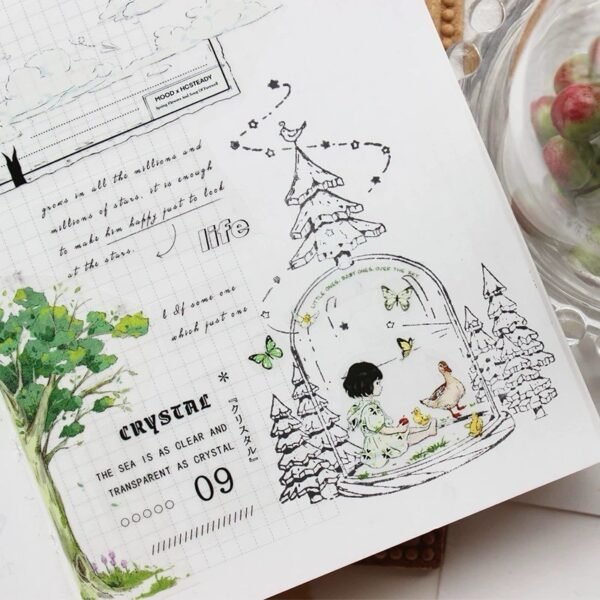 MOOD x HCSTEADY
grows in all the millions and
millions of stars. it is enough
to make him happy just to look
at the stars.
life
& If some one
which just one
LITTLE ONES, BABY ONES, OVER THE SET
*
CRYSTAL
『クリスタル』
THE SEA IS AS CLEAR AND
TRANSPARENT AS CRYSTAL
09